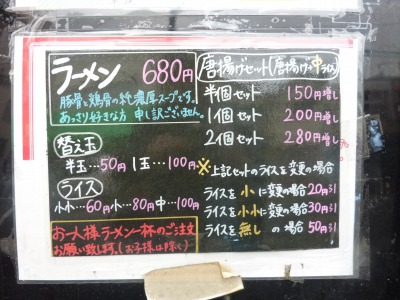 ラーメン 680円
豚骨と鶏骨の純濃厚スープです。
あっさり好きな方 申し訳ございません。
替え玉
半玉…50円 1玉…100円
ライス
小小…60円 小…80円 中…100円
お一人様ラーメン一杯のご注文
お願い致します。(お子様は除く)
唐揚げセット(唐揚げ+中ライス)
半個セット 150円増し
1個セット 200円増し
2個セット 280円増し
※上記セットのライスを変更の場合
ライスを小に変更の場合20円引
ライスを小小に変更の場合30円引
ライスを無しの場合 50円引